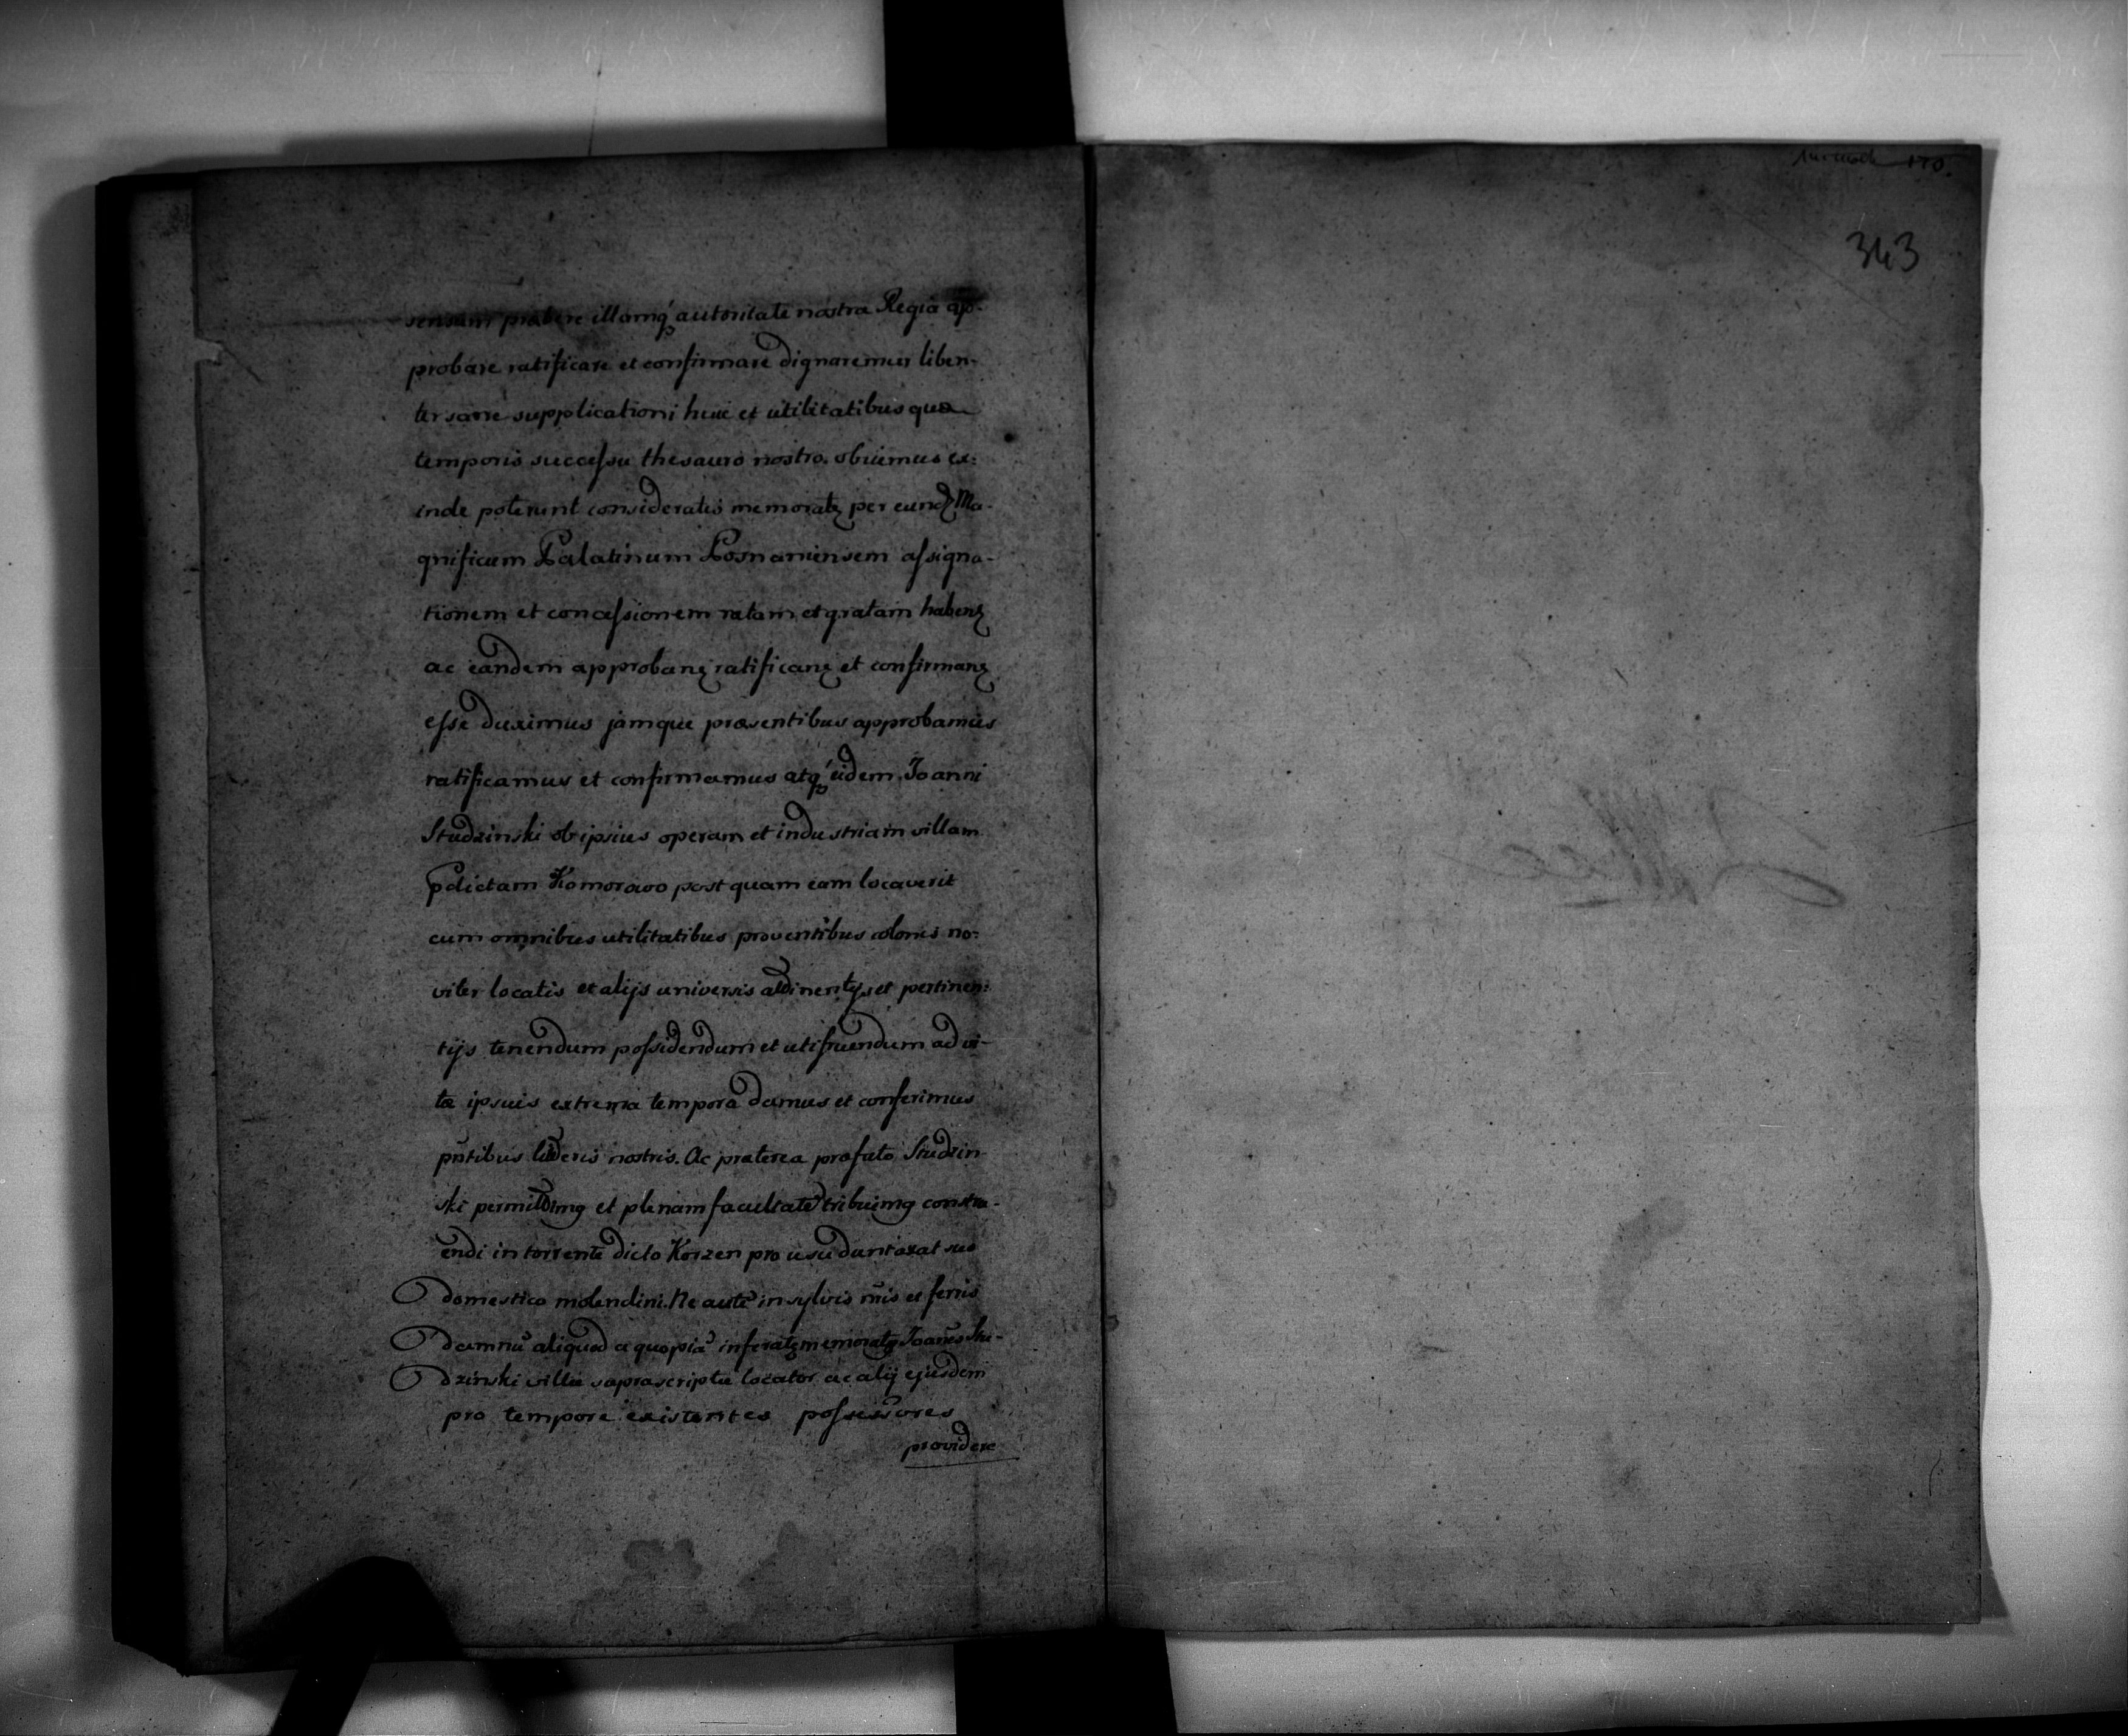 sensum præbere illamq́ autoritate nostra Regia ap-
probare ratificare et confirmare dignaremur liben-
ter sane supplicationi huic et utilitatibus quæ
temporis successu thesauro nostro obvenire ex:
inde poterunt consideratis memoratę per eundę Ma-
gnificum Palatinum Posnaniensem assigna-
tionem et concessionem ratam et gratam habenę
ac eandem approbanę ratificanę et confirmanę
esse duximus jamque præsentibus approbamus
ratificamus et confirmamus atq́ eidem Joanni
Studzinski ob ipsius operam et industriam villam
pdictam Komorowo post quam eam locaverit
cum omnibus utilitatibus proventibus colonis no:
viter locatis et alijs universis attinentijs et pertinen:
tijs tenendum possidendum et utifruendum ad vi-
tæ ipsius extrema tempora damus et conferimus
pñtibus litteris nostris. Ac præterea præfato Studzin
ski permittimg et plenam facultatē tribuimg constru-
endi in torrente dicto Korzen pro usu duntaxat suo
domestico molendini. Ne autē in sylvis nr̃is et feris
damnū aliquod a quopiā inferatę memoratg Joanēs Stu-
dzinski villæ supra scriptæ locator ac alij ejusdem
pro tempore existentes possessores
providere
343